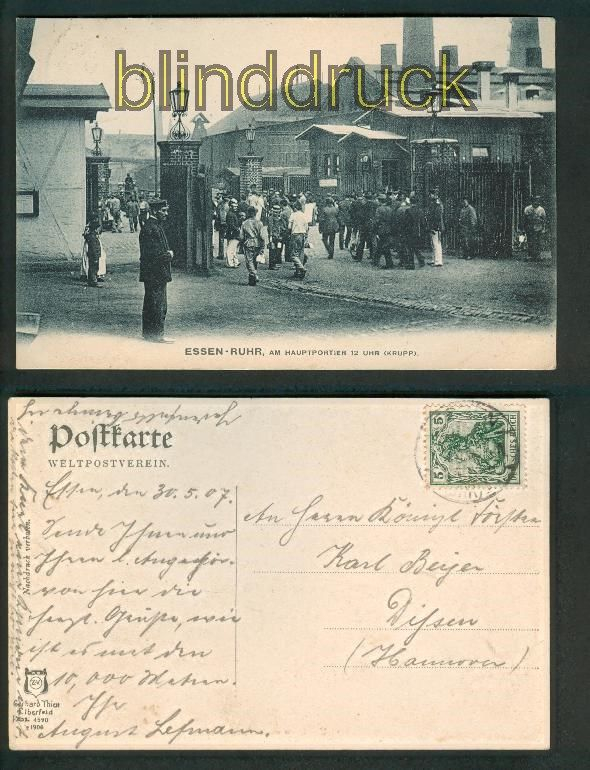 blinddruck
ESSEN-RUHR, AM HAUPTPORTIER 12 UHR (KRUPP).
Postkarte
WELTPOSTVEREIN.
Nachdruck verboten.
Essen, den 30.5.07.
Sende Ihnen und
Ihren l. Angehör.
von hier die
herzl. Grüße, wie
ist es mit den
10,000
Ihr
August Lefmann.
An Herrn Königl. Förster
Karl Beijer
Dissen
(Hannover)
5 DEUTSCHES REICH 5
Gerhard Thien
Elberfeld
4590
1906